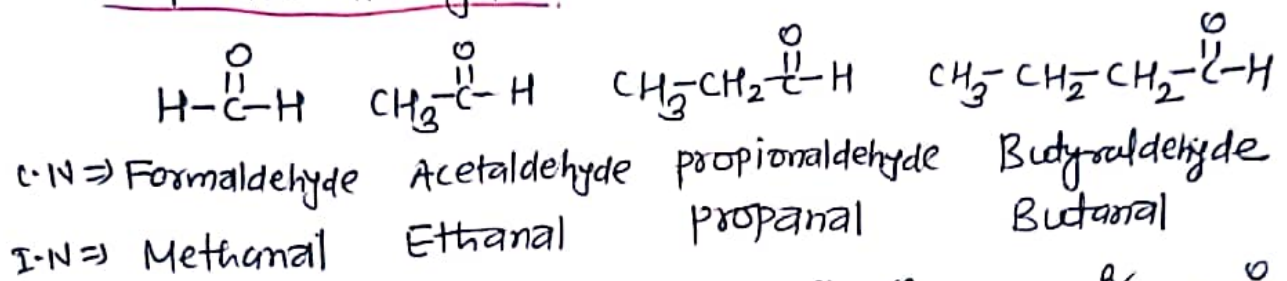 O O O O
H-C-H CH3-C-H CH3-CH2-C-H CH3-CH2-CH2-C-H
C.N⇒ Formaldehyde Acetaldehyde propionaldehyde Butyraldehyde
I.N⇒ Methanal Ethanal propanal Butanal
O